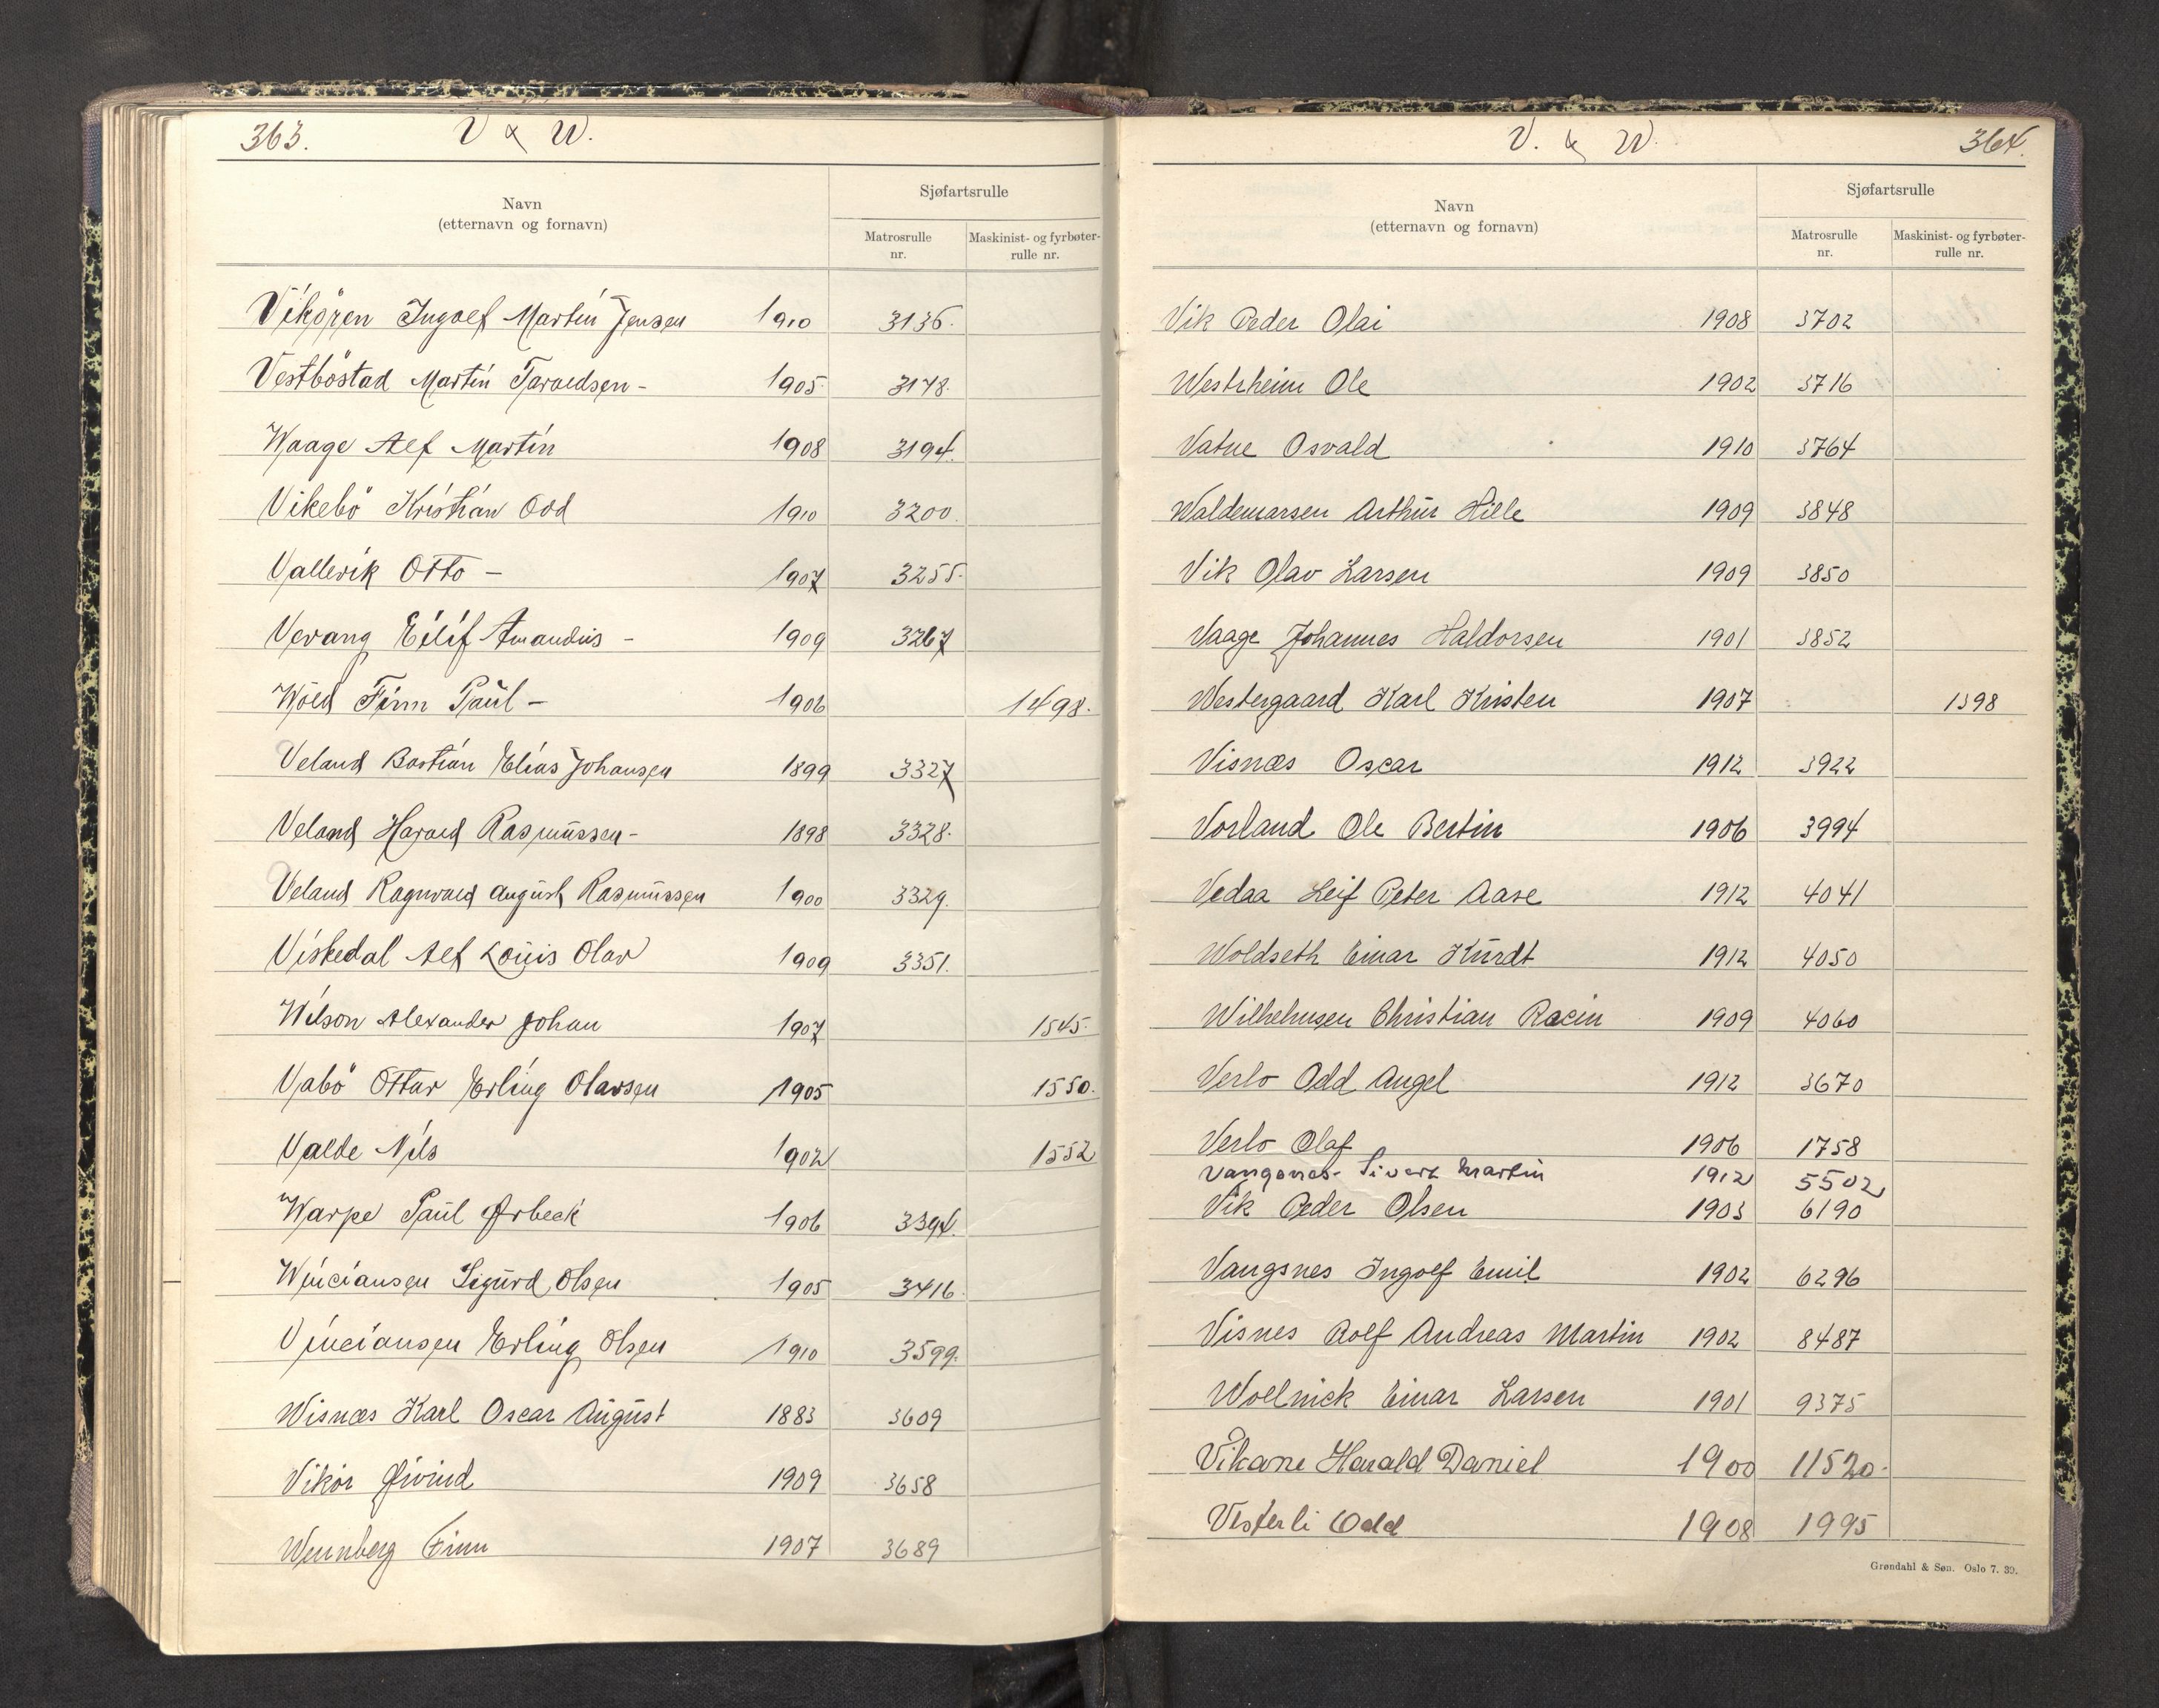 363. V & W.
Navn
(etternavn og fornavn)
Sjøfartsrulle
Matrosrulle
nr.
Maskinist- og fyrbøter-
rulle nr.
Vikören Ingolf Martin Jensen 1910 3136.
Vestböstad Martin Taraldsen - 1905 3178.
Waage Alf Martin 1908 3194.
Vikebö Kristian Odd 1910 3200.
Vallevik Otto - 1907 3255.
Vevang Eilif Amandus - 1909 3267
Wold Finn Paul - 1906 1498.
Veland Bastian Elias Johansen 1899 3327
Veland Harald Rasmussen - 1898 3328.
Veland Ragnvald August Rasmussen 1900 3329.
Viskedal Alf Louis Olav 1909 3351.
Wilson Alexander Johan 1907 1545.
Vabö Ottar Erling Olavsen 1905 1550.
Valde Nils 1902 1552
Warpe Paul Ørbeck 1906 3394.
Winciansen Sigurd Olsen 1905 3416.
Vinciansen Erling Olsen 1910 3599.
Wisnæs Karl Oscar August 1883 3609
Vikör Øivind 1909 3658
Wennberg Finn 1907 3689
V. & W. 364.
Navn
(etternavn og fornavn)
Sjøfartsrulle
Matrosrulle
nr.
Maskinist- og fyrbøter-
rulle nr.
Vik Peder Olai 1908 3702
Westrheim Ole 1902 3716
Vatne Osvald 1910 3764
Waldemarsen Arthur Hille 1909 3848
Vik Olav Larsen 1909 3850
Vaage Johannes Haldorsen 1901 3852
Westergaard Karl Kristen 1907 1398
Visnæs Oscar 1912 3922
Vorland Ole Bertin 1906 3994
Vedaa Leif Peter Aase 1912 4041
Woldseth Einar Kurdt 1912 4050
Wilhelmsen Christian 1909 4060
Verlo Odd Angel 1912 3670
Verlo Olaf 1906 1758
Vangsnes Sivert Martin 1912 5502
Vik Peder Olsen 1903 6190
Vangsnes Ingolf Emil 1902 6296
Visnes Rolf Andreas Martin 1902 8487
Woelnick Einar Larsen 1901 9375
Vikane Harald Daniel 1900 11520.
Vesterli Odd 1908 1995
Grøndahl & Søn. Oslo 7. 39.